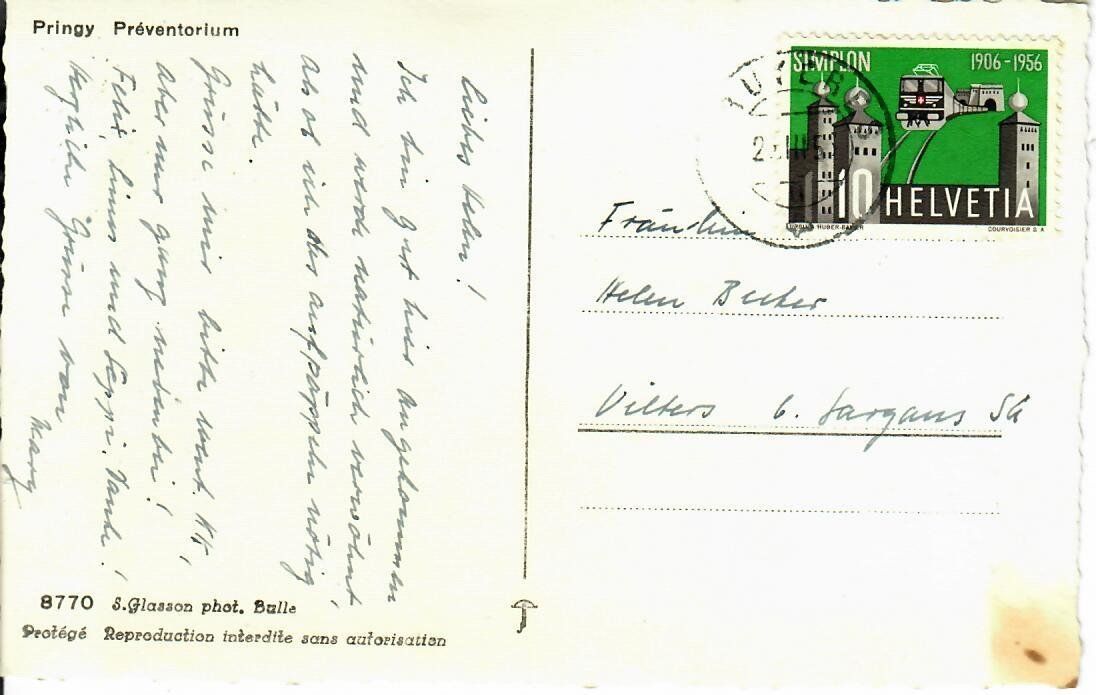 Pringy Préventorium
Liebes Helen!
Ich bin gut hier angekommen
und werde natürlich verwöhnt
als ob ich das aufpäppeln nötig
hätte.
Grüsse mir bitte
aber nur ganz nebenbei!
Felix, Linus und Seppi. Danke!
Herzliche Grüsse von
Mary
8770 S. Glasson phot. Bulle
Protégé Reproduction interdite sans autorisation
SIMPLON 1906-1956
10 HELVETIA
HUBER-BAUER COURVOISIER S A
Fräulein
Helen Becker
Vilters b. Sargans SG